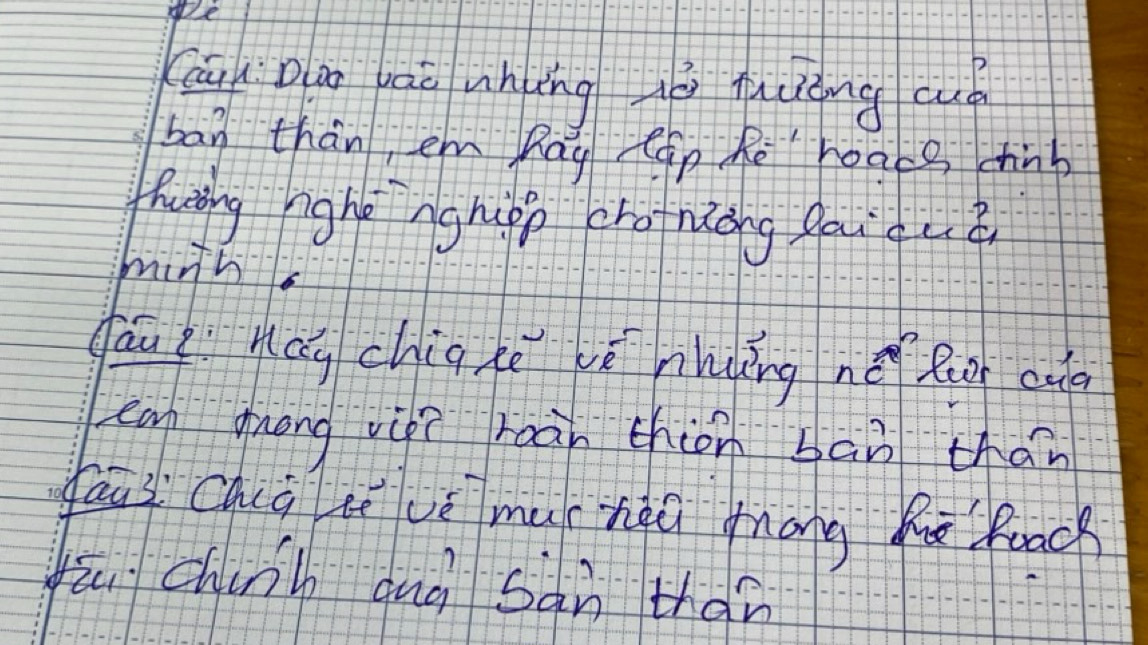 Đề
Câu 1: Dựa vào những sở trường của
bản thân, em hãy lập kế hoạch định
hướng nghề nghiệp cho tương lai của
mình.
Câu 2: Hãy chia sẻ về những nỗ lực của
em trong việc hoàn thiện bản thân
Câu 3: Chia sẻ về mục tiêu trong kế hoạch
tài chính của bản thân